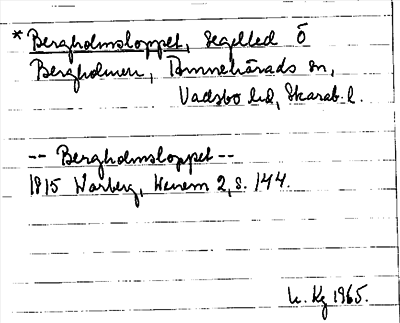 * Bergholmsloppet, segelled Ö
Bergholmen, Amnehärads sn,
Vadsbo hd, Skarab. l.
-- Bergholmsloppet --
1815 Warberg, Wenern 2, s. 144.
1965.